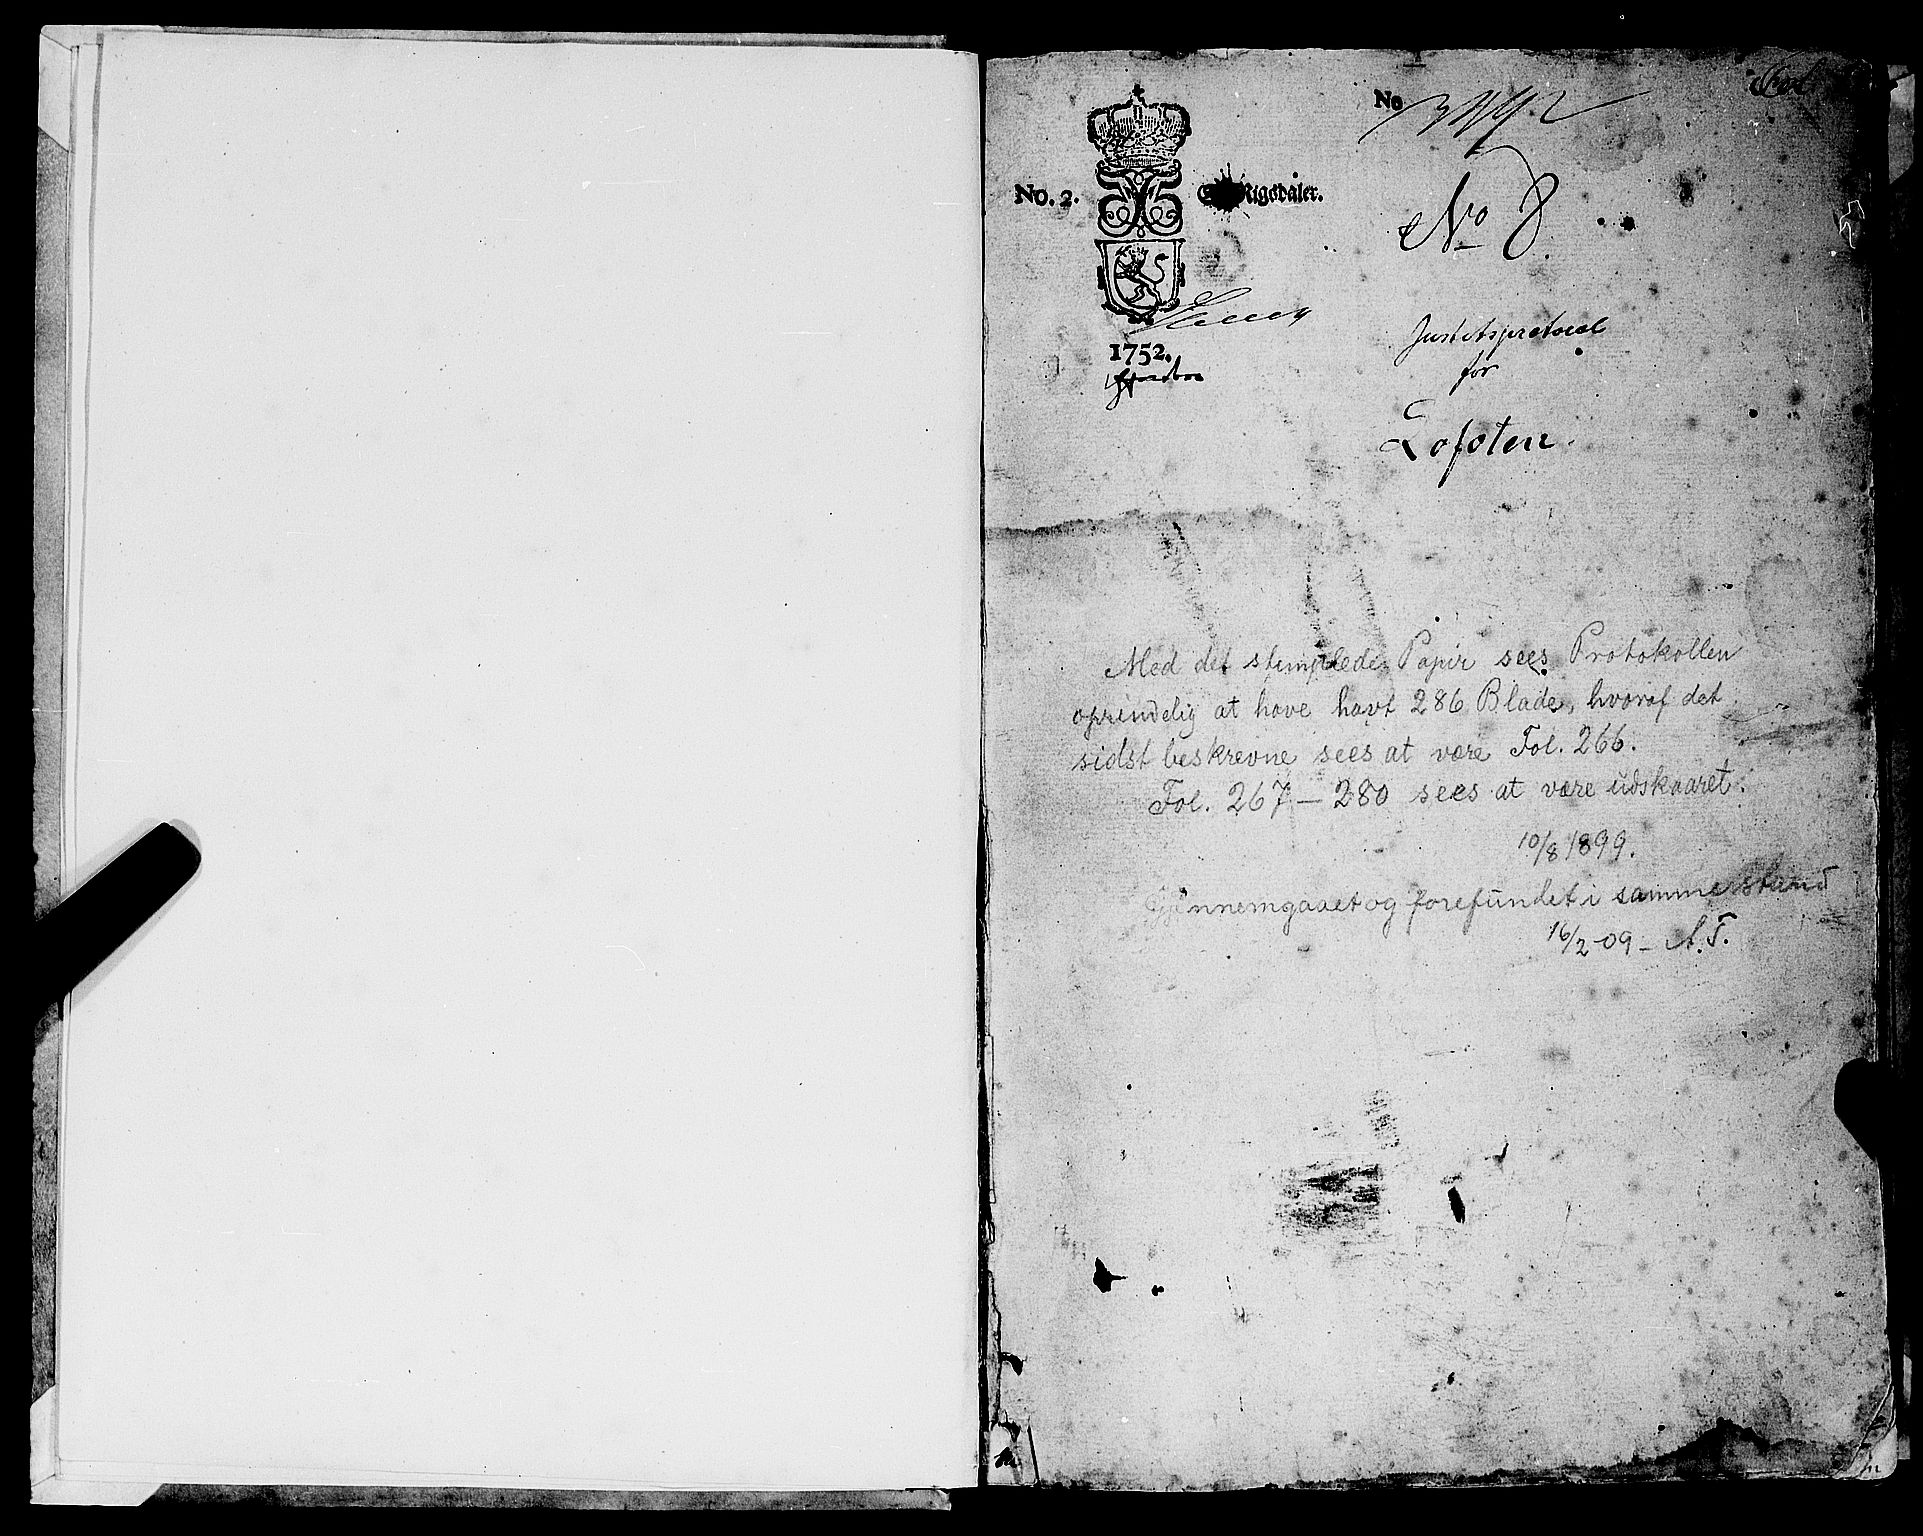 No
Fol
No. 2.
Rigsdaler.
No 8.
1752.
Justitsprotocol
for
Lofoten.
Med det stemplede Papir sees Protokollen
oprindelig at have havt 286 Blade, hvoraf det
sidst beskrevne sees at være Fol. 266.
Fol. 267 - 280 sees at være udskaaret.
10/8 1899.
Gjennemgaaet og forefundet i samme stand
16/2 09 - A.T.